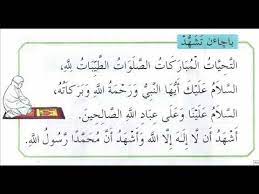 باچاءن تشهد
التَّحِيَّاتُ الْمُبَارَكَاتُ الصَّلَوَاتُ الطَّيِّبَاتُ لِلَّهِ،
السَّلَامُ عَلَيْكَ أَيُّهَا النَّبِيُّ وَرَحْمَةُ اللَّهِ وَبَرَكَاتُهُ،
السَّلَامُ عَلَيْنَا وَعَلَى عِبَادِ اللَّهِ الصَّالِحِينَ.
أَشْهَدُ أَن لَّا إِلَهَ إِلَّا اللَّهُ وَأَشْهَدُ أَنَّ مُحَمَّدًا رَسُولُ اللَّهِ.